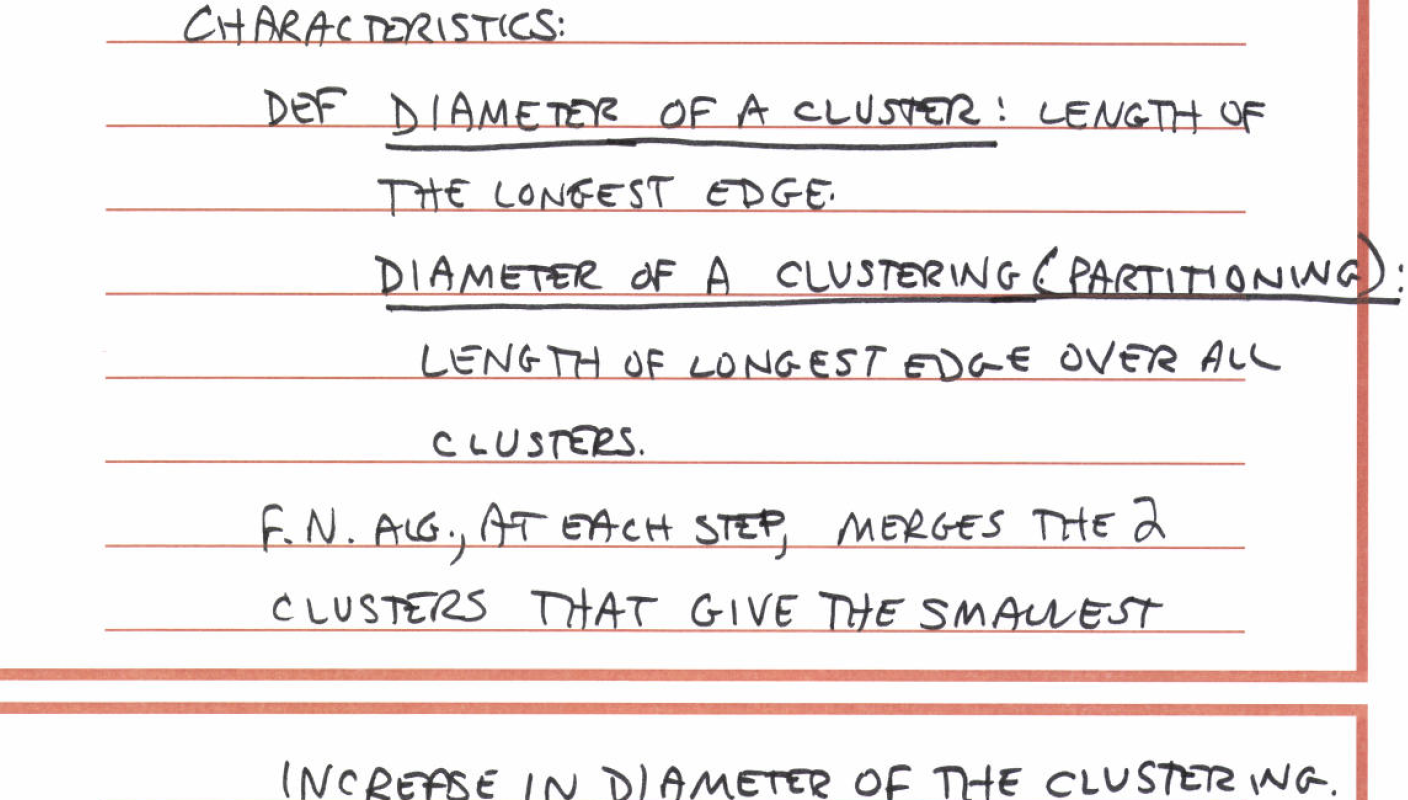 CHARACTERISTICS:
DEF DIAMETER OF A CLUSTER: LENGTH OF
THE LONGEST EDGE.
DIAMETER OF A CLUSTERING (PARTITIONING):
LENGTH OF LONGEST EDGE OVER ALL
CLUSTERS.
F.N. ALG., AT EACH STEP, MERGES THE 2
CLUSTERS THAT GIVE THE SMALLEST
INCREASE IN DIAMETER OF THE CLUSTERING.